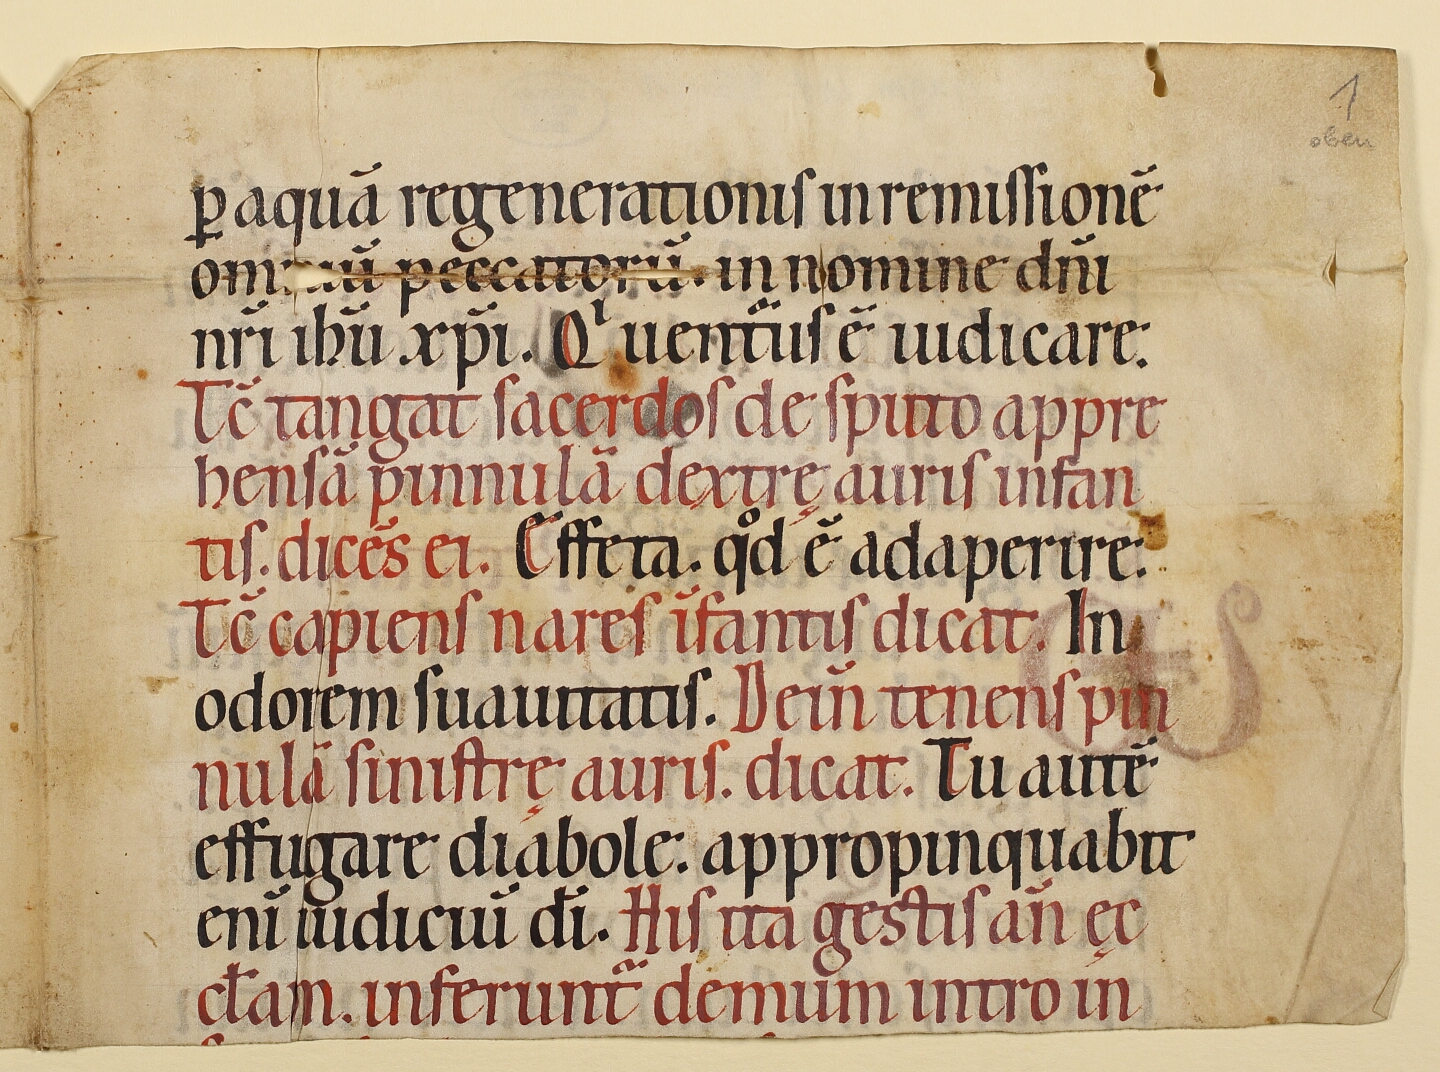 1
oben
ꝑ aquā regenerationis in remissionē
omniū peccatorū. in nomine dn̄i
nr̄i ihū xp̄i. Qͥ uentᷓus ē iudicare.
Tc̄ tangat sacerdos de sputo appre
hensā pinnulā dextrę auris infan
tis. dicēs ei. Effeta. qͦd ē adaperire.
Tc̄ capiens nares īfantis dicat. In
odorem suauitatis. Dein̄ tenens pin
nulā sinistrę auris. dicat. Tu autē
effugare diabole. appropinquabit
enī iudiciū dī. His ita gestis an̄ ęc
cƚam. inferuntᷓ demum intro in